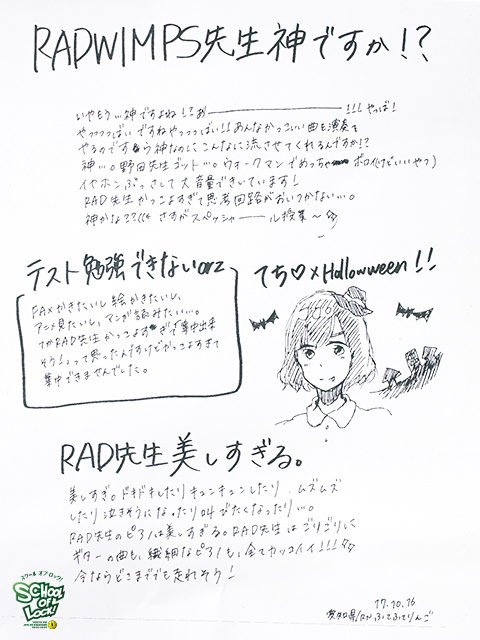 RADWIMPS先生神ですか!?
いやもう…神ですよね!?あ゛ーーーーー!!!やっば!
やっっっっばいですねやっっっばい!!あんなかっこいい曲も演奏も
やるのですから神なのにこんなに流させてくれるんですか!?
神…。野田先生ゴット…。ウォークマンでめっちゃ ボロイけどいいやつ
イヤホンぶっさして大音量できいています!
RAD先生かっこよすぎて思考回路がおいつかない…。
神かな???さすがスペッシャーール授業〜
テスト勉強できないorz
FAXかきたいし絵かきたいし、
アニメ見たいし、マンガ読みたい…。
てかRAD先生かっこよすぎて集中出来
そう!って思ったんですけどかっこよすぎて
集中できませんでした。
てち♡×Hallowween!!
RAD先生美しすぎる。
美しすぎ。ドキドキしたりキュンキュンしたり、ムズムズ
したり泣きそうになったり叫びたくなったり…。
RAD先生のピアノは美しすぎる。RAD先生はごりごりに
ギターの曲も、繊細なピアノも、全てカッコイイ!!!
今ならどこまででも走れそう!
17.10.16
愛知県/RN ふてふてりんご
スクール オブ ロック!
SCHOOL OF LOCK!